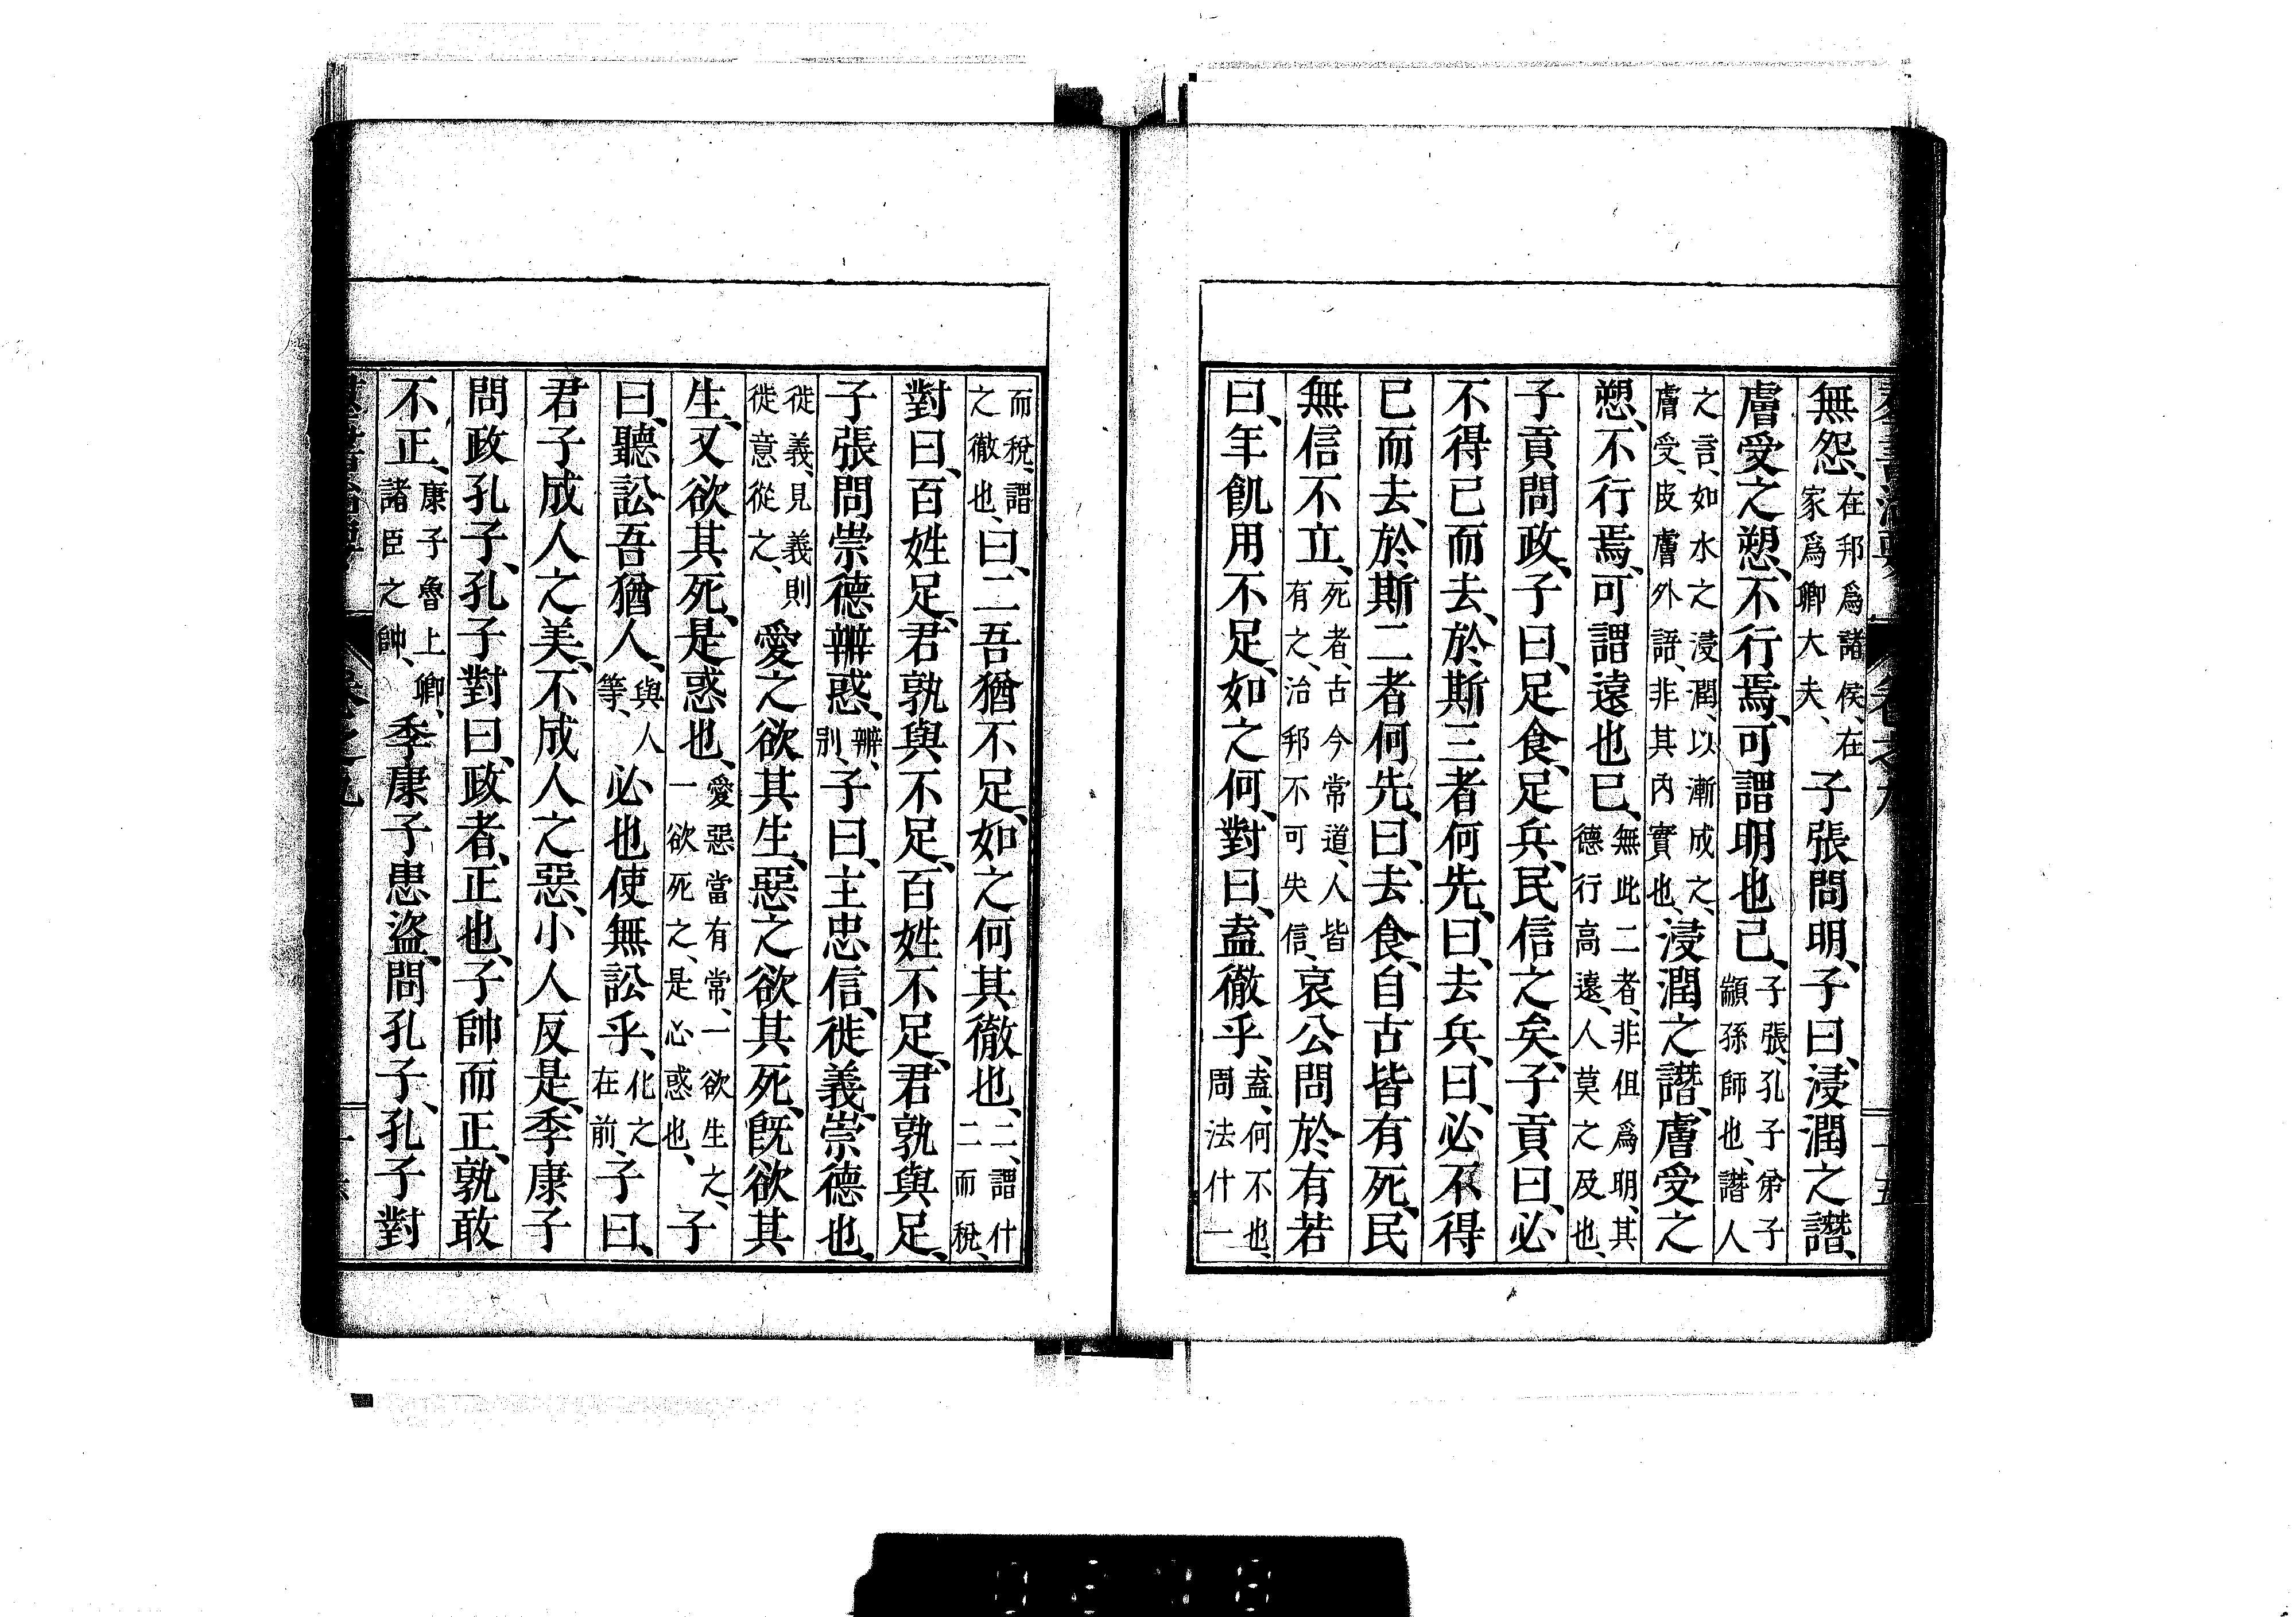 羣書治要 卷之九 十五
無怨、在邦爲諸侯、在家爲卿大夫、子張問明、子曰、浸潤之譖、
膚受之愬、不行焉、可謂明也已、子張、孔子弟子顓孫師也、譖人
之言、如水之浸潤、以漸成之、膚受、皮膚外語、非其內實也、浸潤之譖、膚受之
愬、不行焉、可謂遠也已、無此二者、非但爲明、其德行高遠、人莫之及也、
子貢問政、子曰、足食、足兵、民信之矣、子貢曰、必
不得已而去、於斯三者何先、曰、去兵、曰、必不得
已而去、於斯二者何先、曰、去食、自古皆有死、民
無信不立、死者、古今常道、人皆有之、治邦不可失信、哀公問於有若
曰、年飢用不足、如之何、對曰、盍徹乎、盍、何不也、周法什一
而稅、謂之徹也、曰、二吾猶不足、如之何其徹也、二、謂什二而稅、
對曰、百姓足、君孰與不足、百姓不足、君孰與足、
子張問崇德辨惑、辨、別、子曰、主忠信、徙義、崇德也、
徙義、見義則徙意從之、愛之欲其生、惡之欲其死、旣欲其
生、又欲其死、是惑也、愛惡當有常、一欲生之、一欲死之、是心惑也、子
曰、聽訟吾猶人、與人等、必也使無訟乎、化之在前、子曰、
君子成人之美、不成人之惡、小人反是、季康子
問政孔子、孔子對曰、政者、正也、子帥而正、孰敢
不正、康子魯上卿、諸臣之帥、季康子患盜、問孔子、孔子對
卷之九